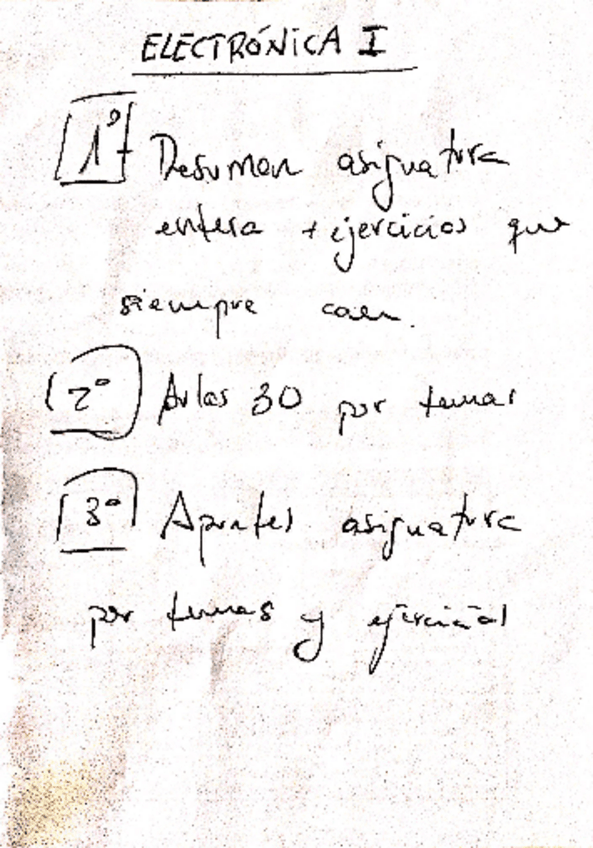 ELECTRÓNICA I
1º Resumen asignatura
entera + ejercicios que
siempre caen.
2º Aulas 30 por temas
3º Apuntes asignatura
por temas y ejercicios